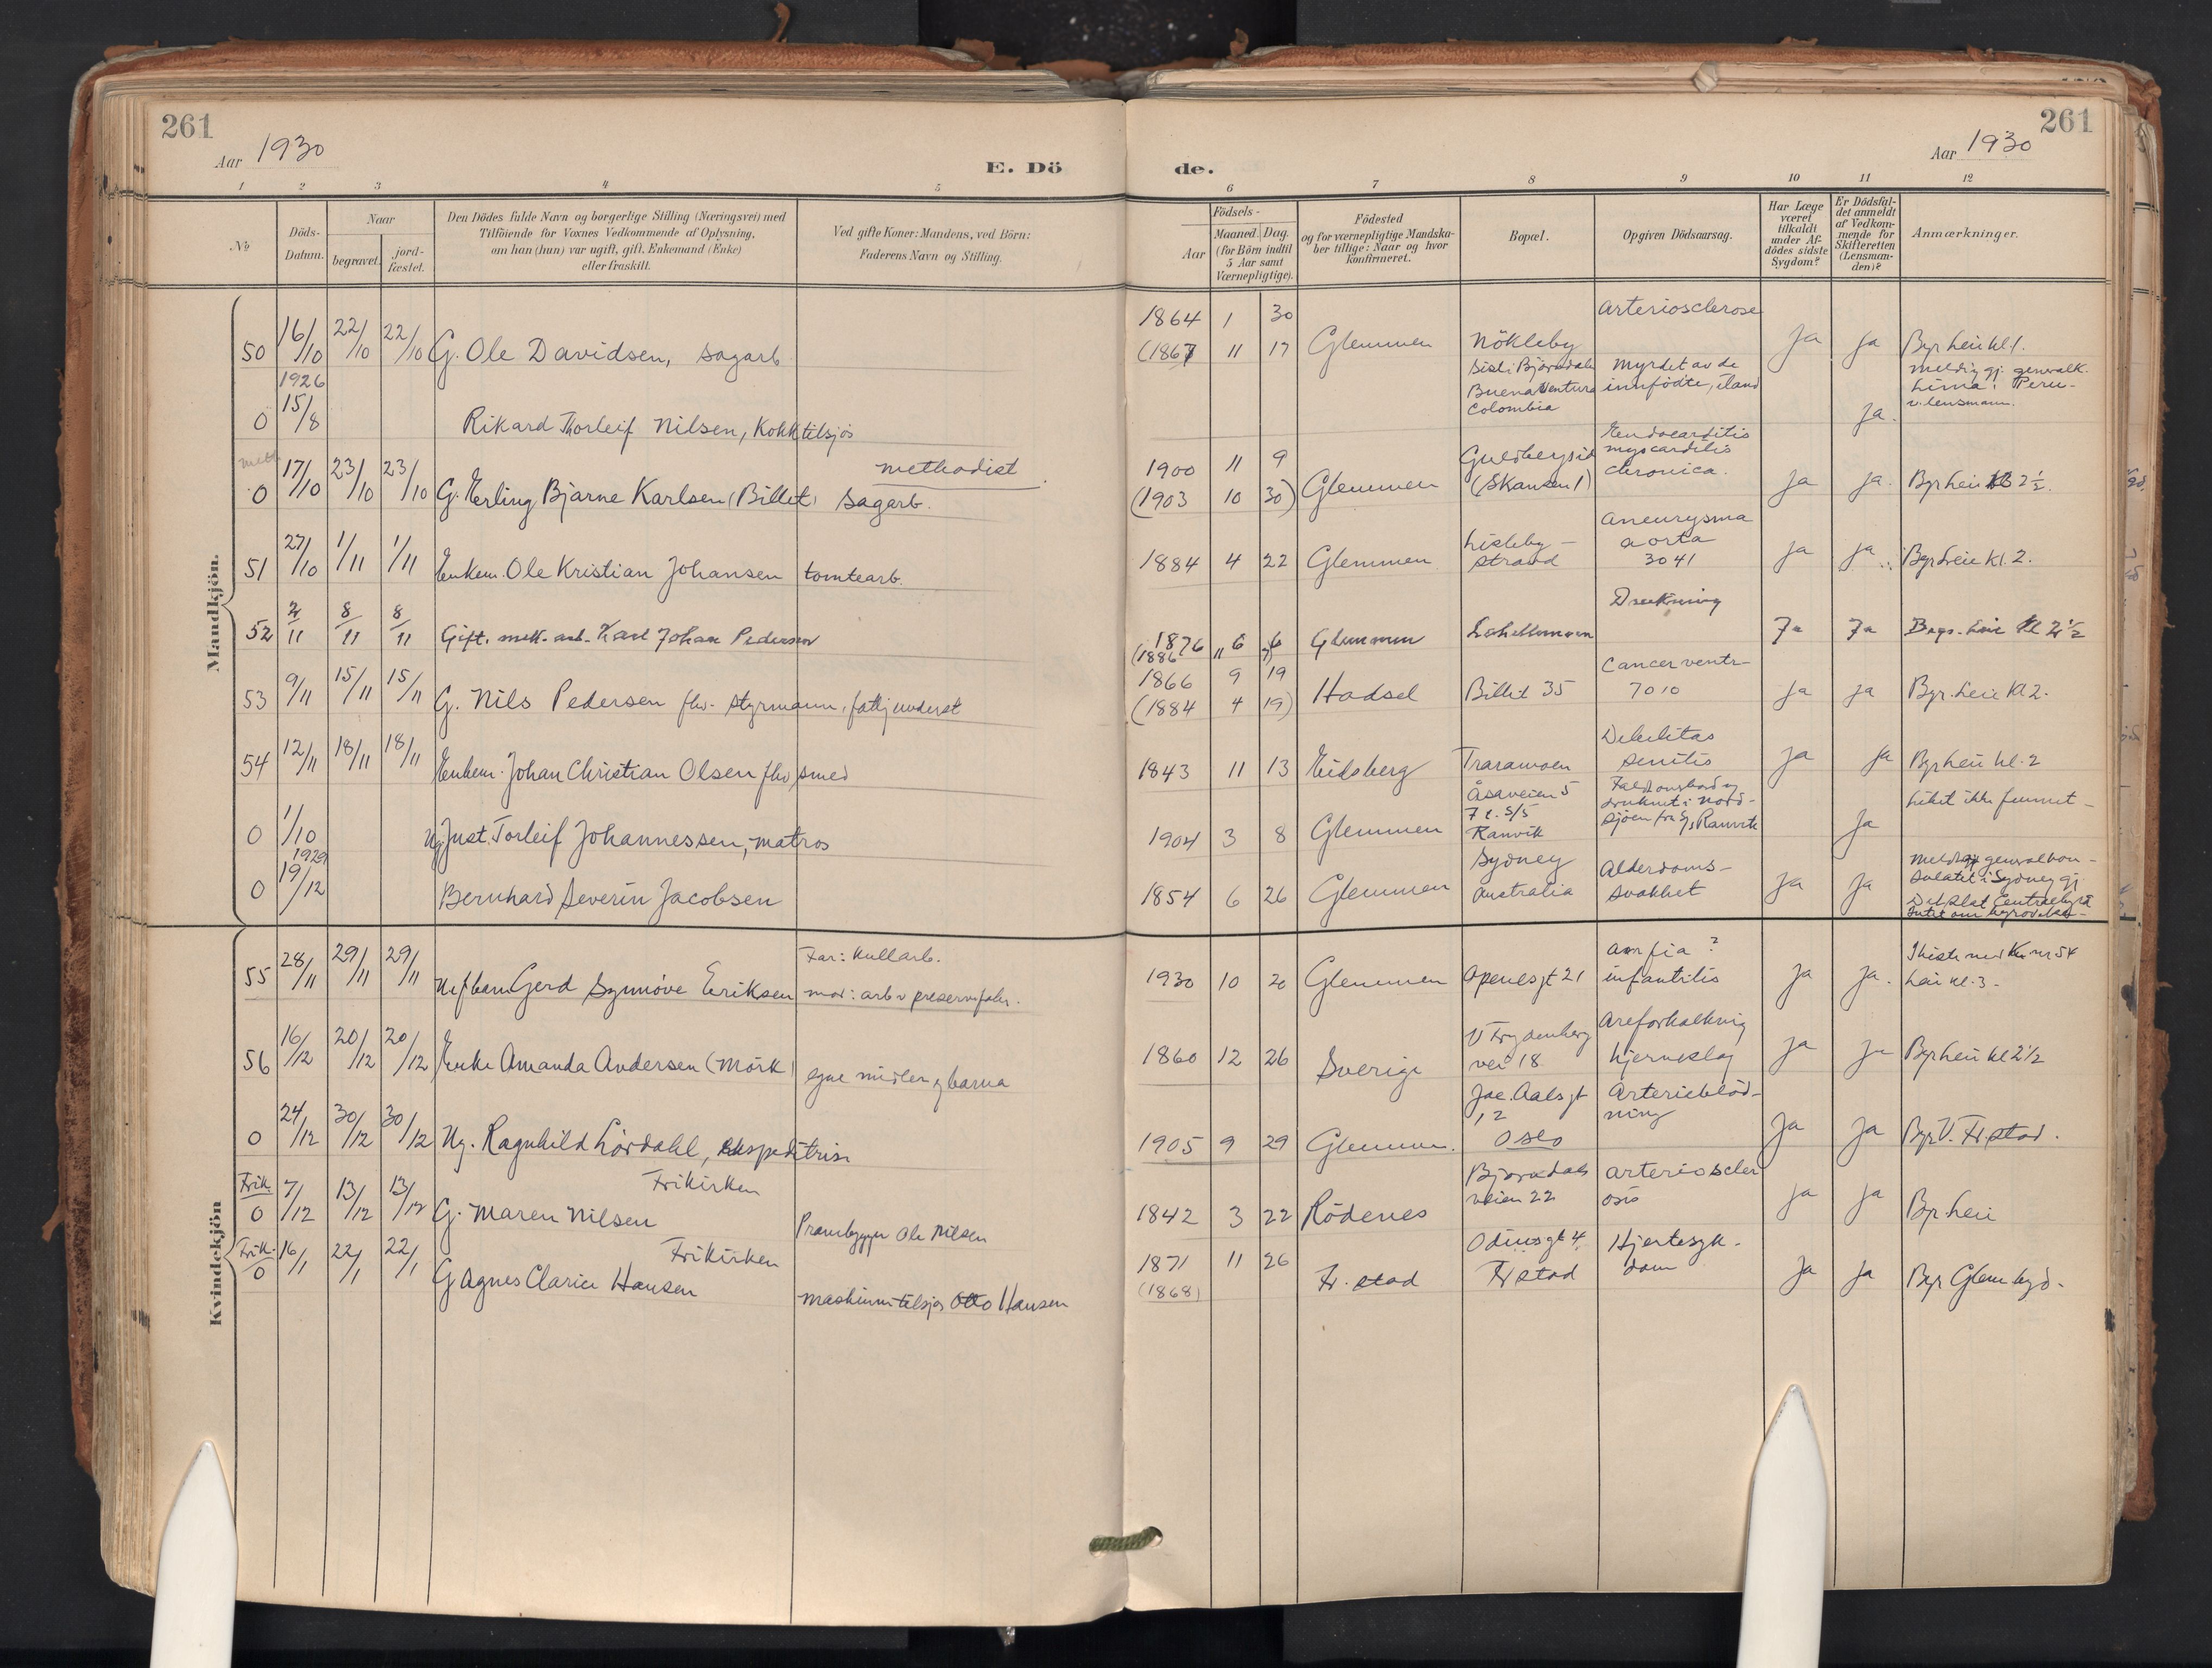 261
Aar 1930
E. Dö
1 2 3 4 5
No
Döds-Datum.
Naar
begravet.
jord-fæstet.
Den Dödes fulde Navn og borgerlige Stilling (Næringsvei) med
Tilföiende for Voxnes Vedkommende af Oplysning,
om han (hun) var ugift, gift, Enkemand (Enke)
eller fraskilt.
Ved gifte Koner: Mandens, ved Börn:
Faderens Navn og Stilling.
Mandkjön.
50 16/10 22/10 22/10 G. Ole Davidsen, sagarb.
1926
0 15/8 Rikard Thorleif Nilsen, Kokk tilsjøs
meth. methodist
0 17/10 23/10 23/10 G. Erling Bjarne Karlsen (Billet) sagarb.
51 27/10 1/11 1/11 Enkem. Ole Kristian Johansen tomtearb.
52 2/11 8/11 8/11 Gift. mek. arb. Karl Johan Pedersen
53 9/11 15/11 15/11 G. Nils Pedersen fhv. styrmann, fattigunderst
54 12/11 18/11 18/11 Enkem. Johan Christian Olsen fhv smed
0 1/10 Ug. Just. Torleif Johannessen, matros
1929
0 19/12 Bernhard Severin Jacobsen
Kvindekjön
Far: Kullarb.
55 28/11 29/11 29/11 Gerd Synnöve Eriksen mor: arb v preservefabr.
56 16/12 20/12 20/12 Enke Amanda Andersen (Mörk) egne midler og barna
0 24/12 30/12 30/12 Ug. Ragnhild Lördahl, ekspeditrise
Frik. Frikirken
0 7/12 13/12 13/12 G. Maren Nilsen Prambygger Ole Nilsen
Frik. Frikirken
0 16/1 22/1 22/1 G Agnes Clarice Hansen maskinm tilsjøs Otto Hansen
261
Aar 1930
de.
6 7 8 9 10 11 12
Födsels-
Aar
Maaned. Dag.
(for Börn indtil
5 Aar samt
Værnepligtige).
Födested
og for værnepligtige Mandska-
ber tillige: Naar og hvor
konfirmeret.
Bopæl.
Opgiven Dödsaarsag.
Har Læge
været
tilkaldt
under Af-
dödes sidste
Sygdom?
Er Dödsfal-
det anmeldt
af Vedkom-
mende for
Skifteretten
(Lensman-
den)?
Anmærkninger.
1864 1 30 Arteriosclerose
(1867 11 17 Glemmen Nökleby Ja Ja Byr Leie kl 1.
Sist: Bjørndalen
Buenaventura
Colombia
Myrdet av de
innfödte, iland
Ja.
Melding gj. generalk.
Lima i Peru -
v. lensmann.
1900 11 9
(1903 10 30) Glemmen
(Skansen 1)
Endocarditis
myocarditis
chronica.
Ja Ja. Byr Leie kl 2½.
1884 4 22 Glemmen
Lisleby -
strand
Aneurysma
aorta
3041
Ja Ja. Byr Leie Kl. 2.
1876 6 6 Glemmen Drukning Ja Ja Leie Kl 2½
(1886 11 7)
1866 9 19
(1884 4 19) Hadsel Billet 35
Cancer ventr-
7010
Ja Ja Byr. Leie Kl 2.
1843 11 13 Eidsberg Traramoen
Debilitas
senilis
Ja Ja Byr Leie kl. 2
1904 3 8 Glemmen
Åsaveien 5
7 t. S/S
Ranvik
Falt overbord og
druknet i Nord-
sjöen fra S/S Ranvik
Ja Liket ikke funnet -
1854 6 26 Glemmen
Sydney
Australia
Alderdoms-
svakhet
Ja Ja
Meldt gj generalkon-
sulatet i Sydney gj
Det Stat. Centralbyrå
1930 10 20 Glemmen Apenesgt 21
Atrofia ?
infantilis
Ja Ja.
Kiste med Kv nr 54
Leie kl. 3 -
1860 12 26 Sverige
V Frydenberg
vei 18
Areforkalkning
hjerneslag
Ja Ja Byr Leie kl 2½
1905 9 29 Glemmen.
Jac. Aalsgt
12
Oslo
Arterieblöd-
ning
Ja Ja Byr V. Fr.stad.
1842 3 22 Rödenes
Bjørndals
veien 22
Arterioscler
osis
Ja Ja Byr. Leie
1871 11 26
(1868) Fr. stad
Odinsgt 4
Fr stad
Hjertesyk-
dom
Ja Ja Byr Glem bygd.